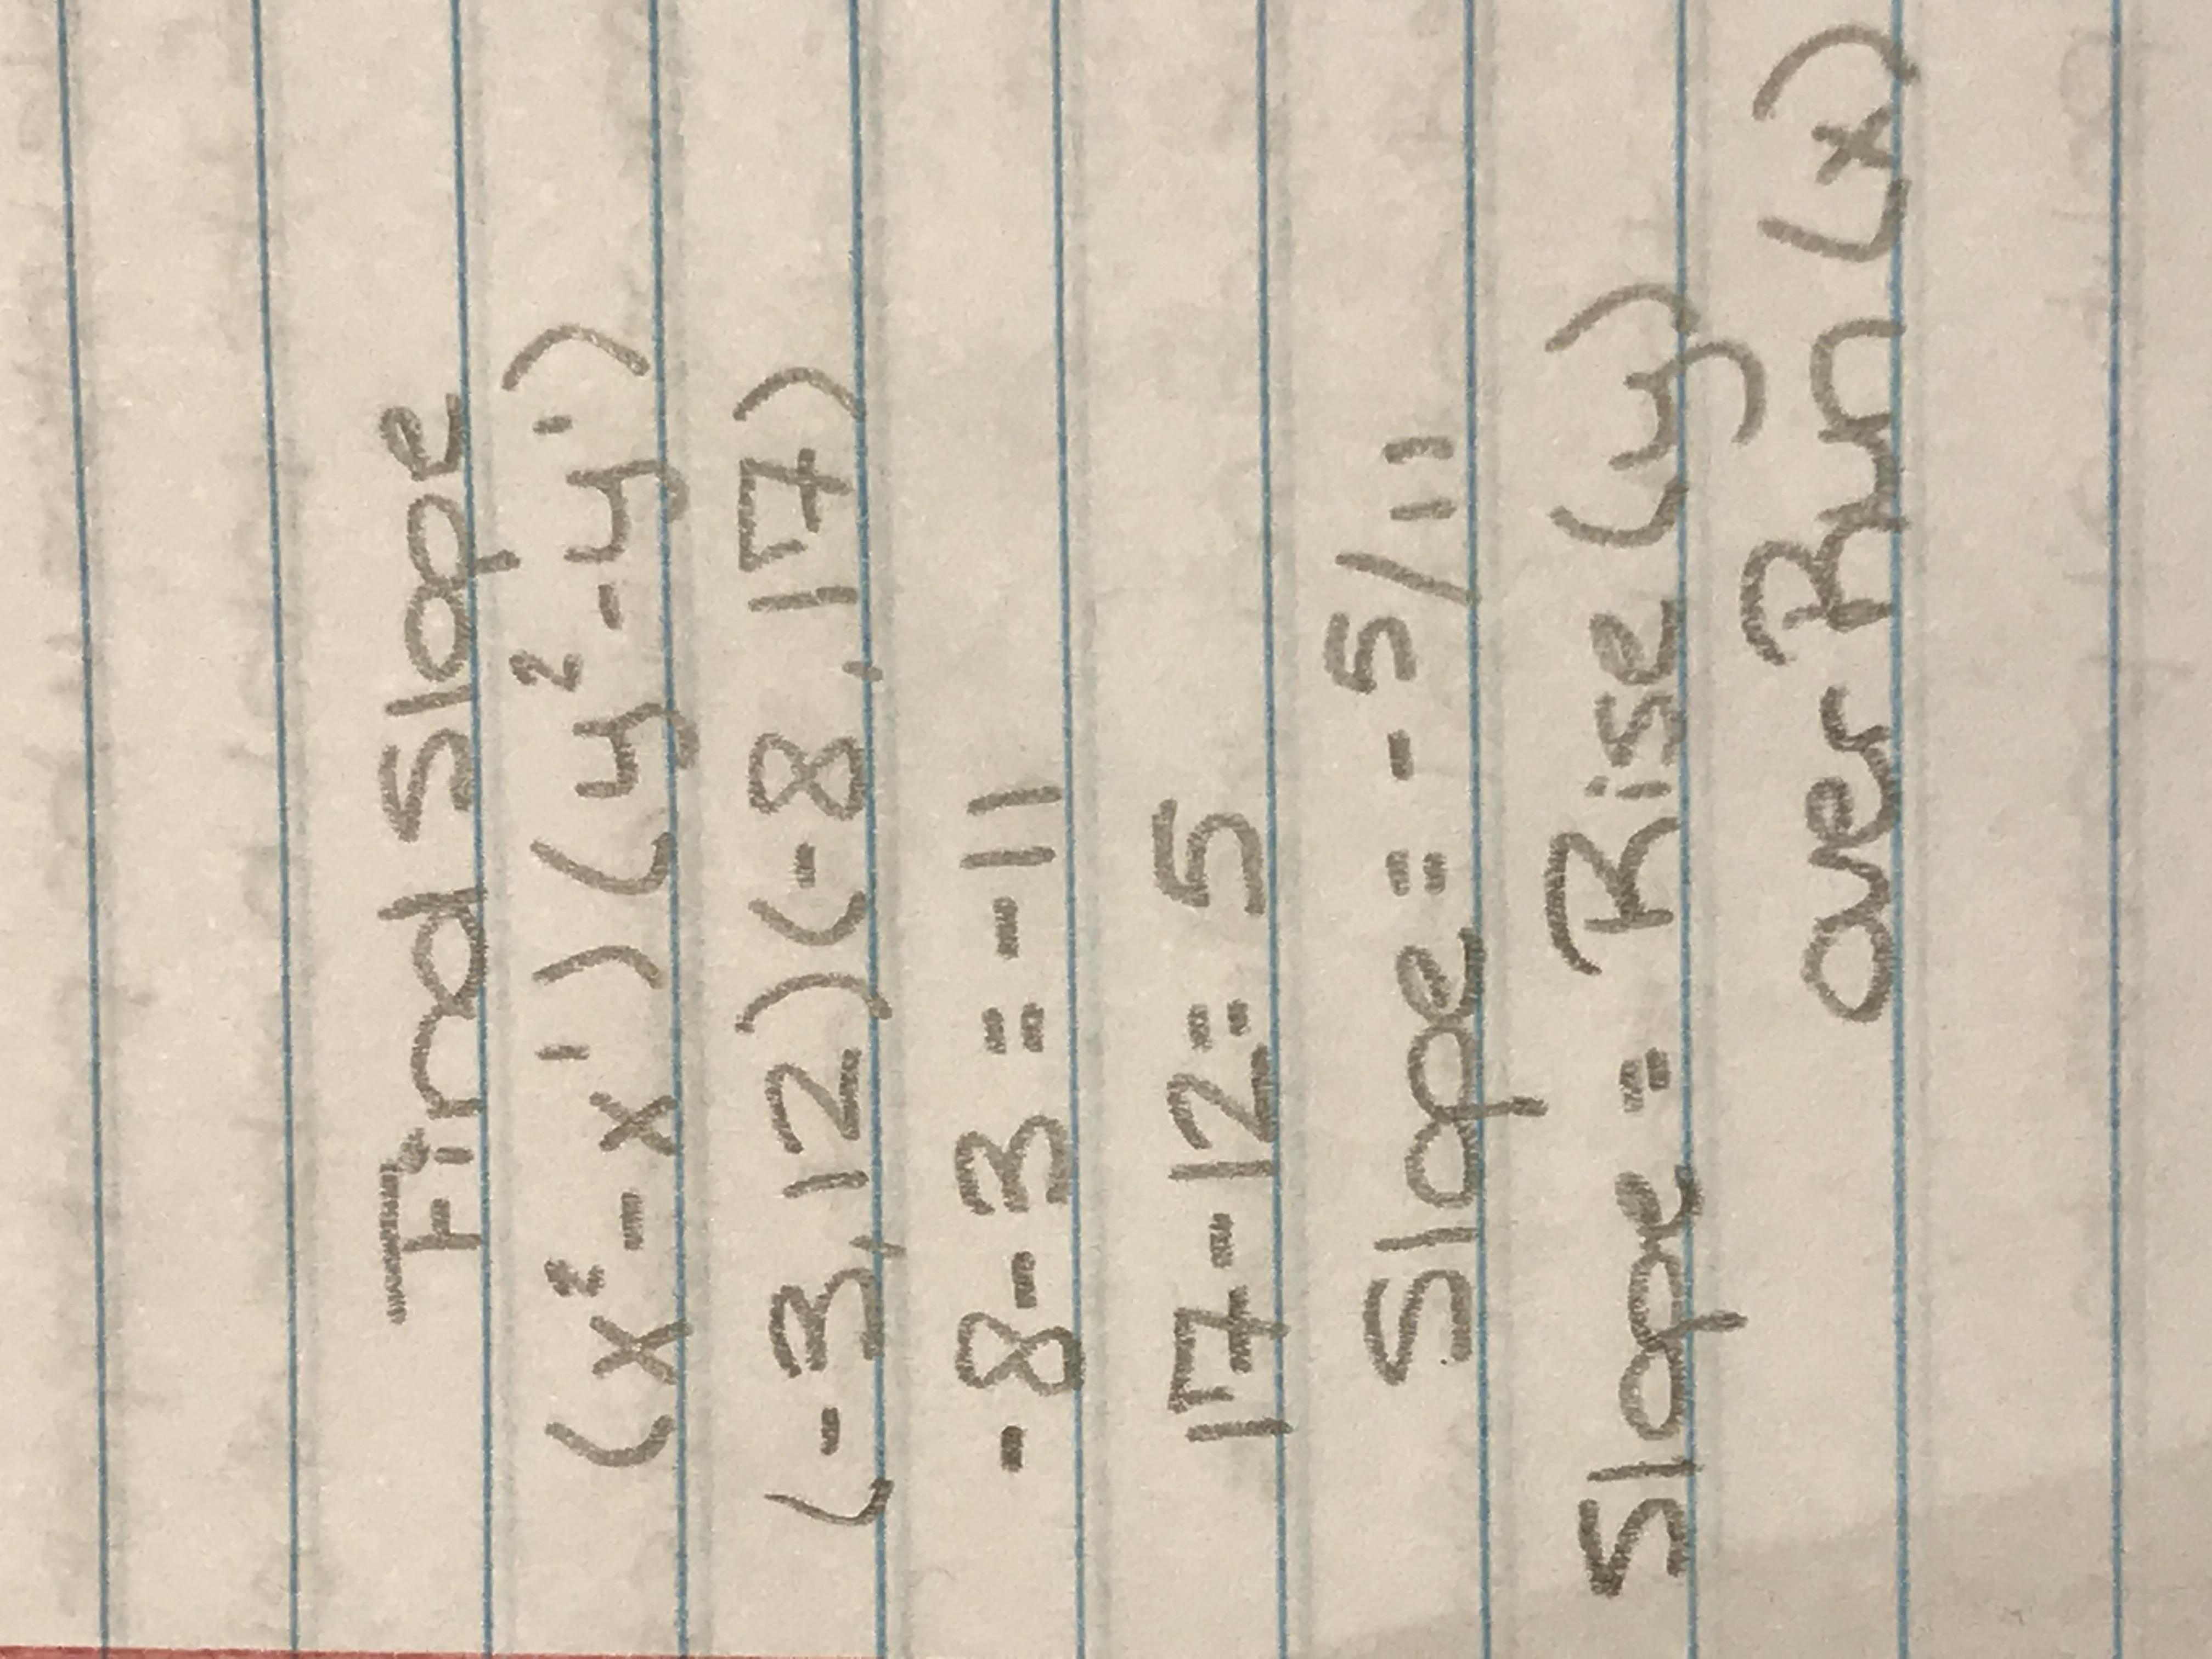 Find Slope
(x² - x¹) (y² - y¹)
(-3, 12) (-8, 17)
-8 - 3 = -11
17 - 12 = 5
Slope = - 5/11
Slope = Rise (y)
over Run (x)